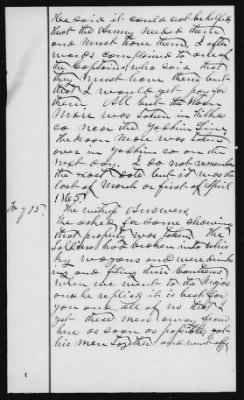 He said it could not be helped
that the Army needed them
and must have them. I after
wards complained to one of
the Captains, who said that
they must have them but
that I would get pay for
them. All but the Roan
Mare was taken in
Co near the Yadkin Line
the Roan Mare was taken
over in Yadkin co on the
next day. I do not remember
the exact date but it was the
last of March or first of April
1865.
To q 15. The witness answers.
He asked for some showing
that property was taken. The
Soldiers had broken into whis
ky wagons and were drink
ing and filling their Canteens
when we went to the Major
and he replied it is best for
you and all of us that I
get these men away from
here as soon as possible got
his men together and went off